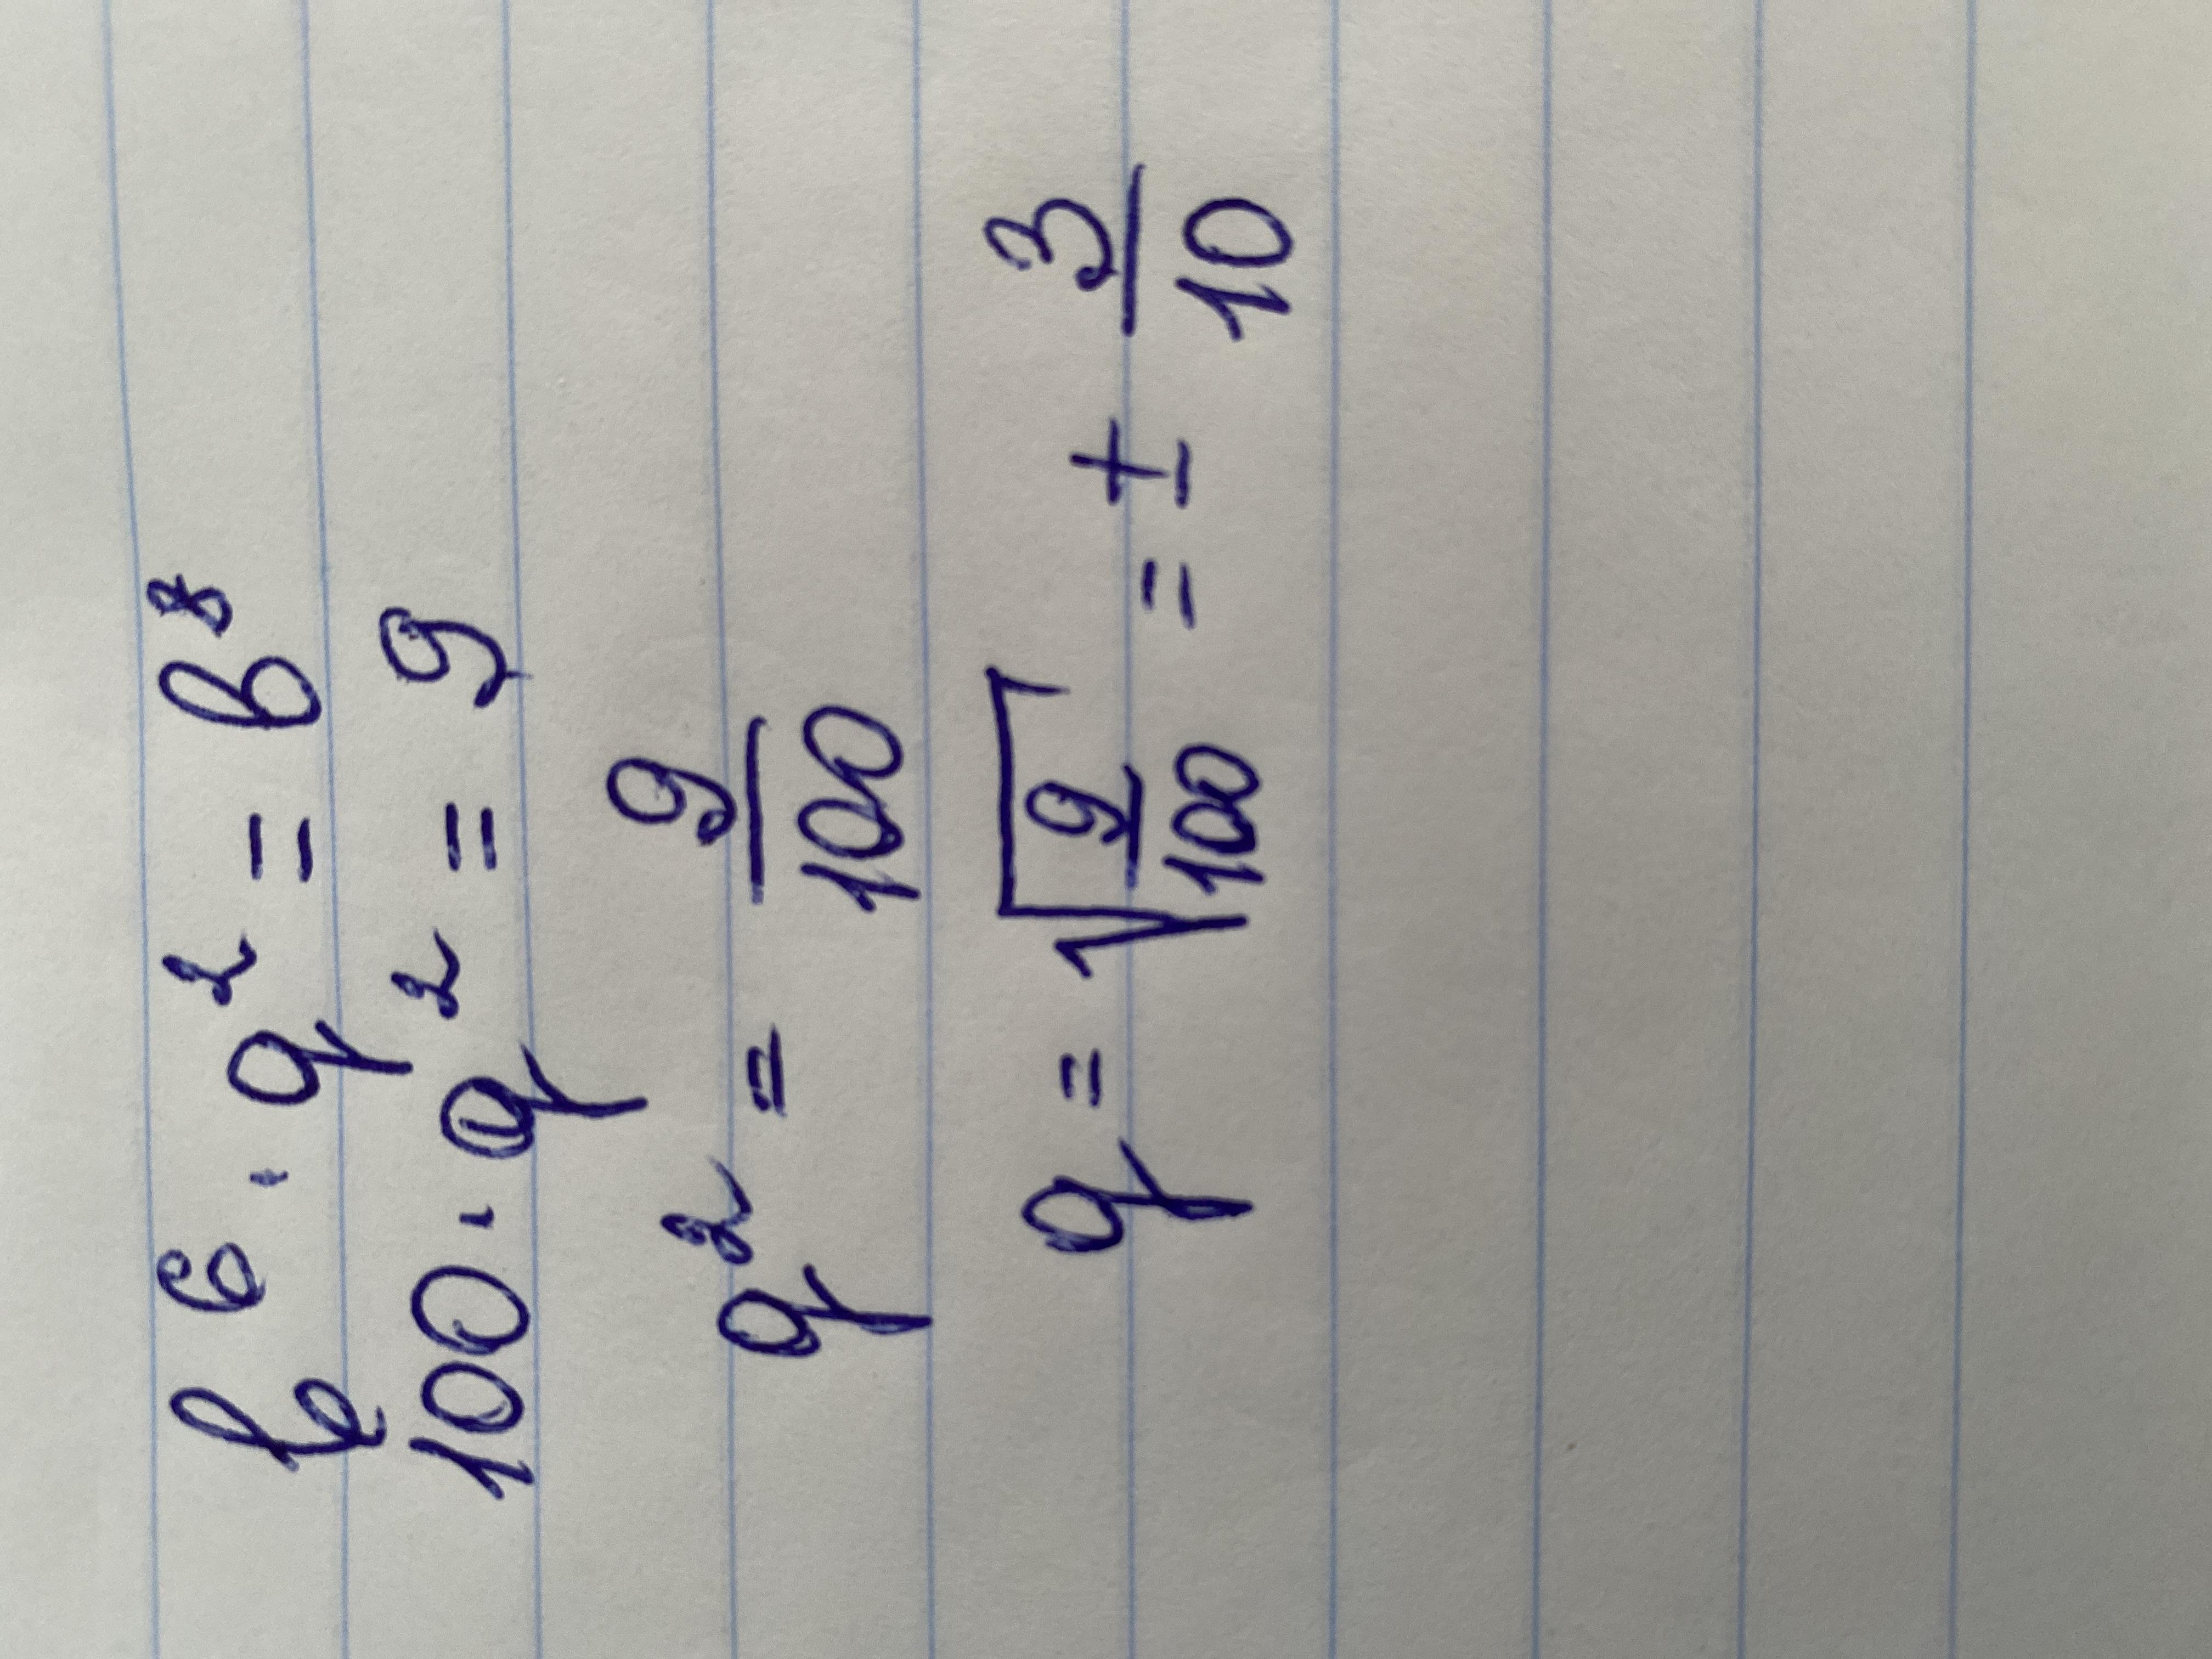 b⁶ · q² = b⁸
100 · q² = 9
q² = 9/100
q = √(9/100) = ± 3/10